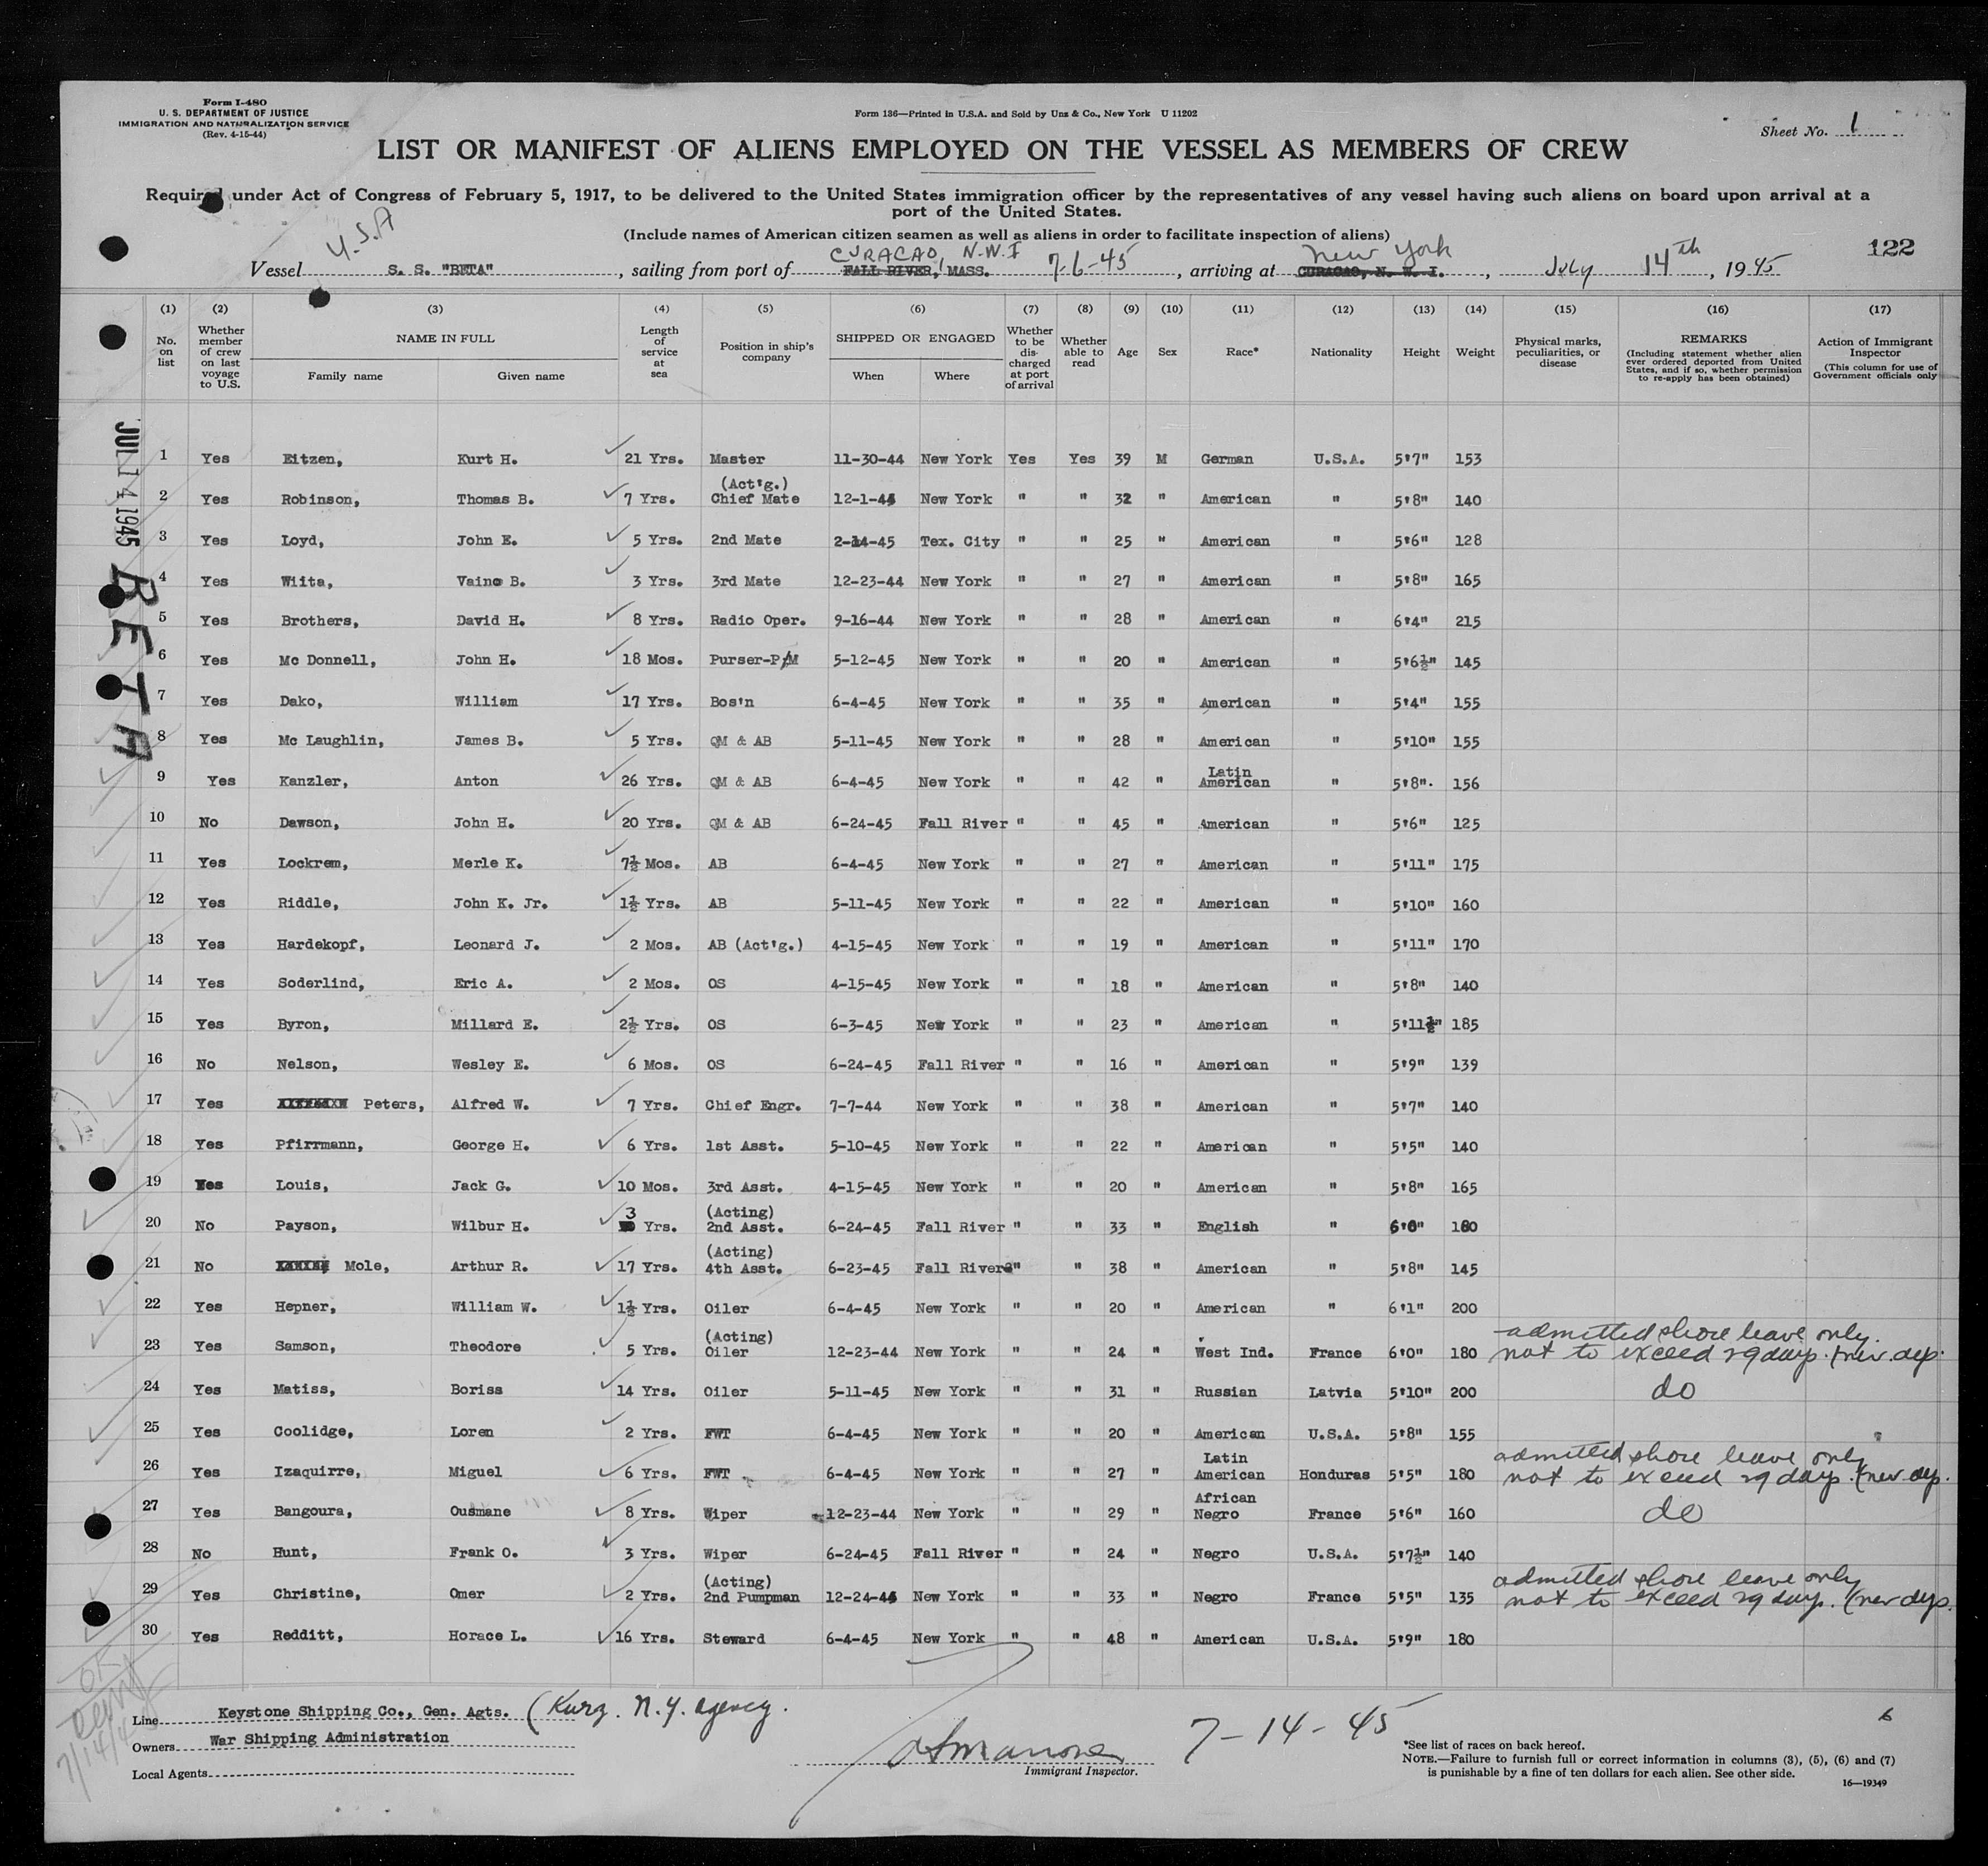 Form I-480
U. S. DEPARTMENT OF JUSTICE
IMMIGRATION AND NATURALIZATION SERVICE
(Rev. 4-15-44)
Form 136—Printed in U.S.A. and Sold by Unz & Co., New York U 11202
Sheet No. 1
LIST OR MANIFEST OF ALIENS EMPLOYED ON THE VESSEL AS MEMBERS OF CREW
Required under Act of Congress of February 5, 1917, to be delivered to the United States immigration officer by the representatives of any vessel having such aliens on board upon arrival at a
port of the United States.
(Include names of American citizen seamen as well as aliens in order to facilitate inspection of aliens)
U.S.A
CURACAO, N.W.I New York
122
Vessel S. S. "BETA", sailing from port of FALL RIVER, MASS. 7-6-45, arriving at CURACAO, N. W. I., July 14th, 1945
(1) (2) (3) (4) (5) (6) (7) (8) (9) (10) (11) (12) (13) (14) (15) (16) (17)
No. on list
Whether member of crew on last voyage to U.S.
NAME IN FULL
Family name Given name
Length of service at sea
Position in ship's company
SHIPPED OR ENGAGED
When Where
Whether to be discharged at port of arrival
Whether able to read
Age
Sex
Race*
Nationality
Height
Weight
Physical marks, peculiarities, or disease
REMARKS
(Including statement whether alien ever ordered deported from United States, and if so, whether permission to re-apply has been obtained)
Action of Immigrant Inspector
(This column for use of Government officials only
JUL 14 1945
BETA
1 Yes Eitzen, Kurt H. 21 Yrs. Master 11-30-44 New York Yes Yes 39 M German U.S.A. 5'7" 153
2 Yes Robinson, Thomas B. 7 Yrs. (Act'g.) Chief Mate 12-1-44 New York " " 32 " American " 5'8" 140
3 Yes Loyd, John E. 5 Yrs. 2nd Mate 2-14-45 Tex. City " " 25 " American " 5'6" 128
4 Yes Wiita, Vaino B. 3 Yrs. 3rd Mate 12-23-44 New York " " 27 " American " 5'8" 165
5 Yes Brothers, David H. 8 Yrs. Radio Oper. 9-16-44 New York " " 28 " American " 6'4" 215
6 Yes Mc Donnell, John H. 18 Mos. Purser-P/M 5-12-45 New York " " 20 " American " 5'6½" 145
7 Yes Dako, William 17 Yrs. Bos'n 6-4-45 New York " " 35 " American " 5'4" 155
8 Yes Mc Laughlin, James B. 5 Yrs. QM & AB 5-11-45 New York " " 28 " American " 5'10" 155
9 Yes Kanzler, Anton 26 Yrs. QM & AB 6-4-45 New York " " 42 " Latin American " 5'8". 156
10 No Dawson, John H. 20 Yrs. QM & AB 6-24-45 Fall River " " 45 " American " 5'6" 125
11 Yes Lockrem, Merle K. 7½ Mos. AB 6-4-45 New York " " 27 " American " 5'11" 175
12 Yes Riddle, John K. Jr. 1½ Yrs. AB 5-11-45 New York " " 22 " American " 5'10" 160
13 Yes Hardekopf, Leonard J. 2 Mos. AB (Act'g.) 4-15-45 New York " " 19 " American " 5'11" 170
14 Yes Soderlind, Eric A. 2 Mos. OS 4-15-45 New York " " 18 " American " 5'8" 140
15 Yes Byron, Millard E. 2½ Yrs. OS 6-3-45 New York " " 23 " American " 5'11½" 185
16 No Nelson, Wesley E. 6 Mos. OS 6-24-45 Fall River " " 16 " American " 5'9" 139
17 Yes Peters, Alfred W. 7 Yrs. Chief Engr. 7-7-44 New York " " 38 " American " 5'7" 140
18 Yes Pfirrmann, George H. 6 Yrs. 1st Asst. 5-10-45 New York " " 22 " American " 5'5" 140
19 Yes Louis, Jack G. 10 Mos. 3rd Asst. 4-15-45 New York " " 20 " American " 5'8" 165
20 No Payson, Wilbur H. 3 Yrs. (Acting) 2nd Asst. 6-24-45 Fall River " " 33 " English " 6'0" 180
21 No Mole, Arthur R. 17 Yrs. (Acting) 4th Asst. 6-23-45 Fall River " " 38 " American " 5'8" 145
22 Yes Hepner, William W. 1½ Yrs. Oiler 6-4-45 New York " " 20 " American " 6'1" 200
23 Yes Samson, Theodore 5 Yrs. (Acting) Oiler 12-23-44 New York " " 24 " West Ind. France 6'0" 180 admitted shore leave only. not to exceed 29 days. (nev. dep.
24 Yes Matiss, Boriss 14 Yrs. Oiler 5-11-45 New York " " 31 " Russian Latvia 5'10" 200 do
25 Yes Coolidge, Loren 2 Yrs. FWT 6-4-45 New York " " 20 " American U.S.A. 5'8" 155
26 Yes Izaquirre, Miguel 6 Yrs. FWT 6-4-45 New York " " 27 " Latin American Honduras 5'5" 180 admitted shore leave only not to exceed 29 days. (nev. dep.
27 Yes Bangoura, Ousmane 8 Yrs. Wiper 12-23-44 New York " " 29 " African Negro France 5'6" 160 do
28 No Hunt, Frank O. 3 Yrs. Wiper 6-24-45 Fall River " " 24 " Negro U.S.A. 5'7½" 140
29 Yes Christine, Omer 2 Yrs. (Acting) 2nd Pumpman 12-24-44 New York " " 33 " Negro France 5'5" 135 admitted shore leave only not to exceed 29 days. (nev dep.
30 Yes Redditt, Horace L. 16 Yrs. Steward 6-4-45 New York " " 48 " American U.S.A. 5'9" 180
OK
7/14/4
Line Keystone Shipping Co., Gen. Agts. (Kurz. N.Y. agency.
Owners War Shipping Administration
Local Agents
7-14-45
Immigrant Inspector.
6
*See list of races on back hereof.
NOTE.—Failure to furnish full or correct information in columns (3), (5), (6) and (7)
is punishable by a fine of ten dollars for each alien. See other side.
16—19349